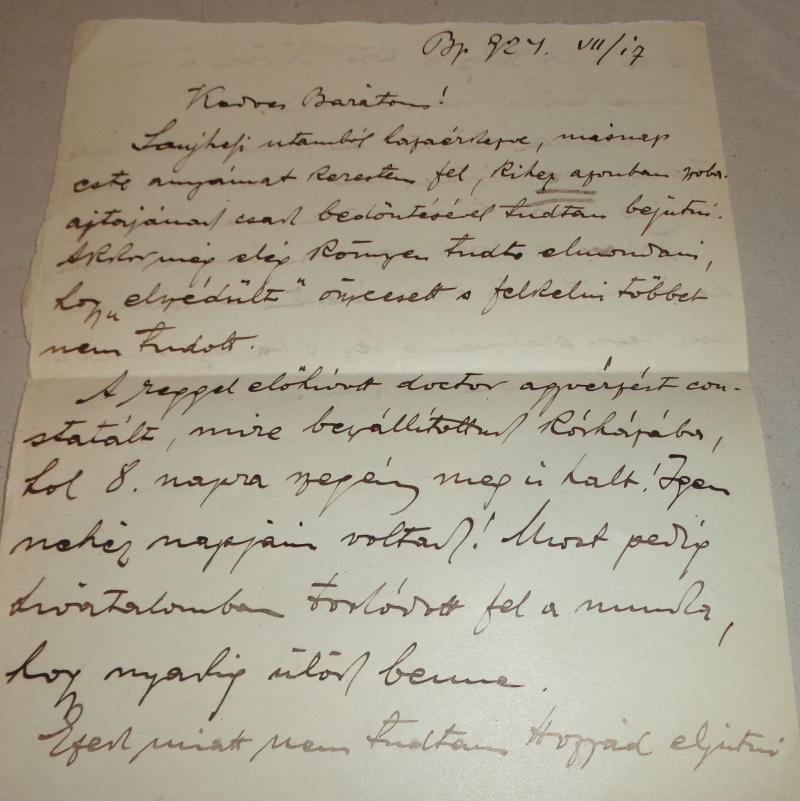 Bp 924. VII/17
Kedves Barátom!
utamból hazaérkezve, másnap
este anyámat kerestem fel, kihez azonban szoba-
ajtajának csak bedöntésével tudtam bejutni.
Akkor még elég könnyen tudta elmondani,
hogy „elszédült" összeesett s felkelni többet
nem tudott.
A reggel előhívott doctor agyvérzést con-
statált, mire beszállítottuk kórházába,
hol 8. napra szegény meg is halt! Igen
nehéz napjaim voltak! Most pedig
hivatalomban torlódott fel a munka,
hogy nyakig ülök benne.
Ezek miatt nem tudtam Hozzád eljutni